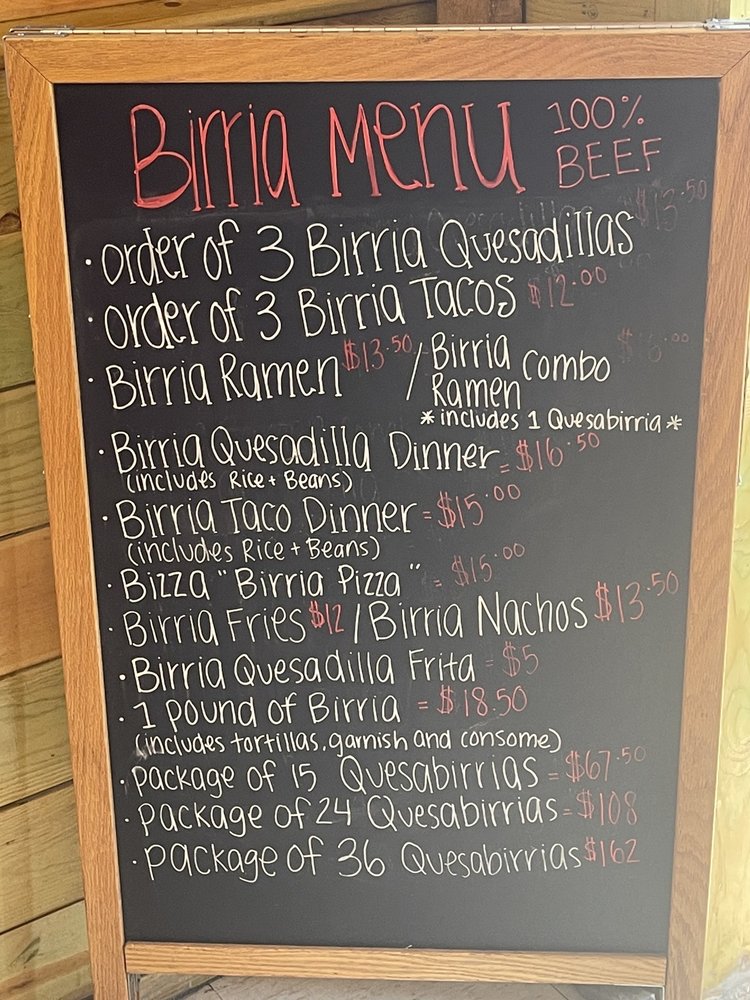 Birria Menu 100% BEEF
· Order of 3 Birria Quesadillas $13.50
· Order of 3 Birria Tacos $12.00
· Birria Ramen $13.50 / Birria Ramen Combo
*includes 1 Quesabirria*
· Birria Quesadilla Dinner = $16.50
(includes Rice + Beans)
· Birria Taco Dinner = $15.00
(includes Rice + Beans)
· Bizza "Birria Pizza" = $15.00
· Birria Fries $12 / Birria Nachos $13.50
· Birria Quesadilla Frita = $5
· 1 pound of Birria = $18.50
(includes tortillas, garnish and consome)
· package of 15 Quesabirrias = $67.50
· package of 24 Quesabirrias = $108
· package of 36 Quesabirrias $162